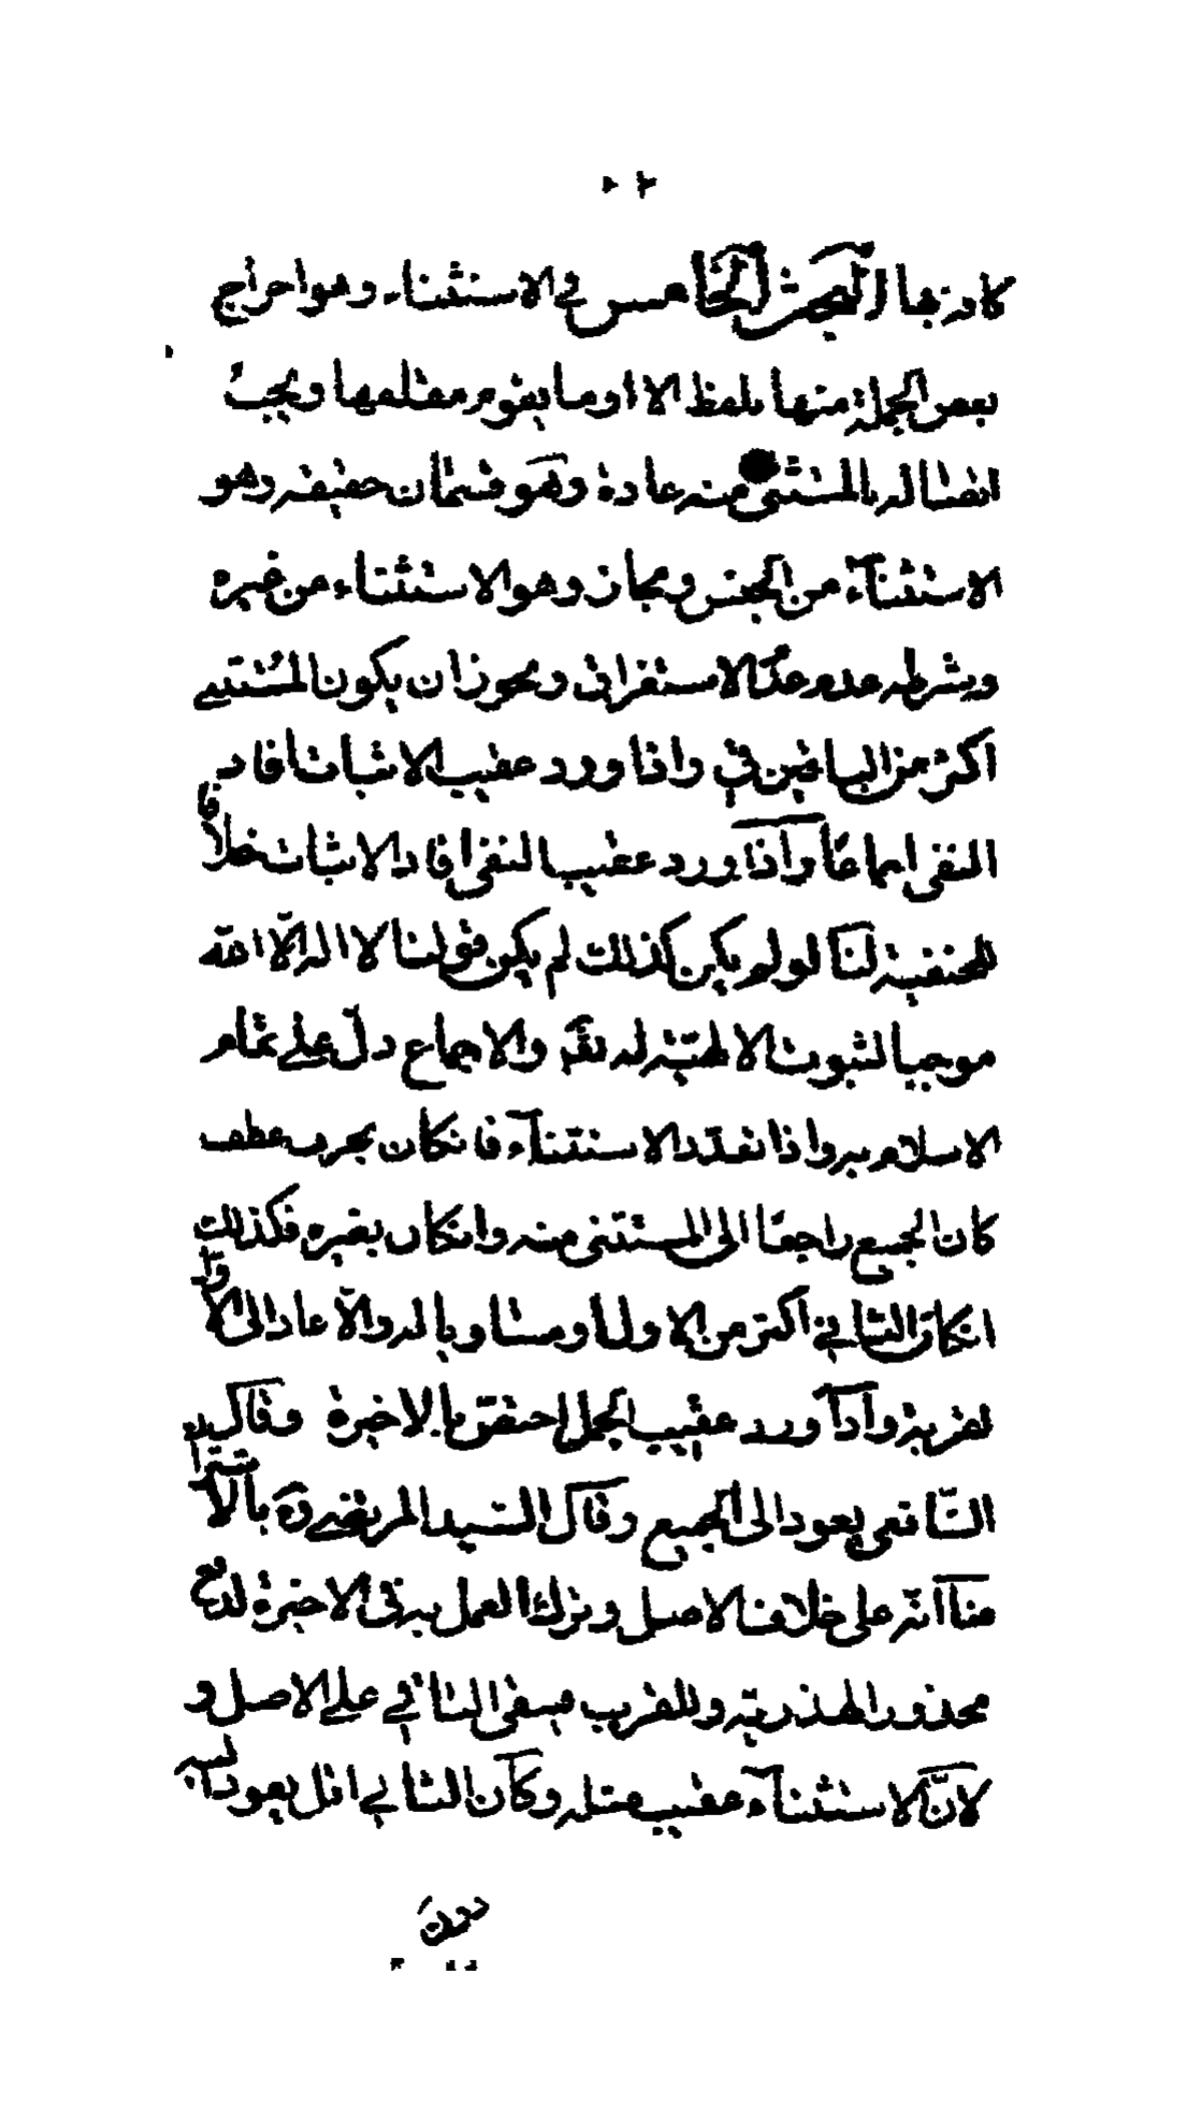 كا در بها البحث الخامس في الاستثناء وهو اخراج
بعض الجملة منها بلفظ الا او ما يقوم مقامها ويجب
اتصاله بالمستثنى منه عادة وهو قسمان حقيقة وهو
الاستثناء من الجنس ومجاز وهو الاستثناء من غيره
وشرطه عدم الاستغراق ويجوز ان يكون المستثنى
اكثر من الباقي واذا ورد عقيب الاثبات افاد
النفى اجماعا واذا ورد عقيب النفى افاد الاثبات خلافا
للحنفية لنا لو لم يكن كذلك لم يكن قولنا لا اله الّا الله
موجبا لثبوت الالهيّة له تعٓ والاجماع دلّ على تمام
الاسلام به واذا تعدّد الاستثنآء فانكان بحرف عطف
كان الجميع راجعا الى المستثنى منه وانكان بغيره فكذلك
انكان الثاني اكثر من الاول او مساويا له والّا عاد الى الاول
لقربه واذا ورد عقيب الجمل اختص بالاخيرة وقال
الشافعى يعود الى الجميع وقال السيد المرتضى ره بالاشتراك
لنا انّه على خلاف الاصل وترك العمل به في الاخيرة لدفع
محذور الهذريّه وللقرب فيبقى الباقي على الاصل و
لانّ الاستثنآء عقيب مثله وكان الثاني اقل يعود اليه
دون